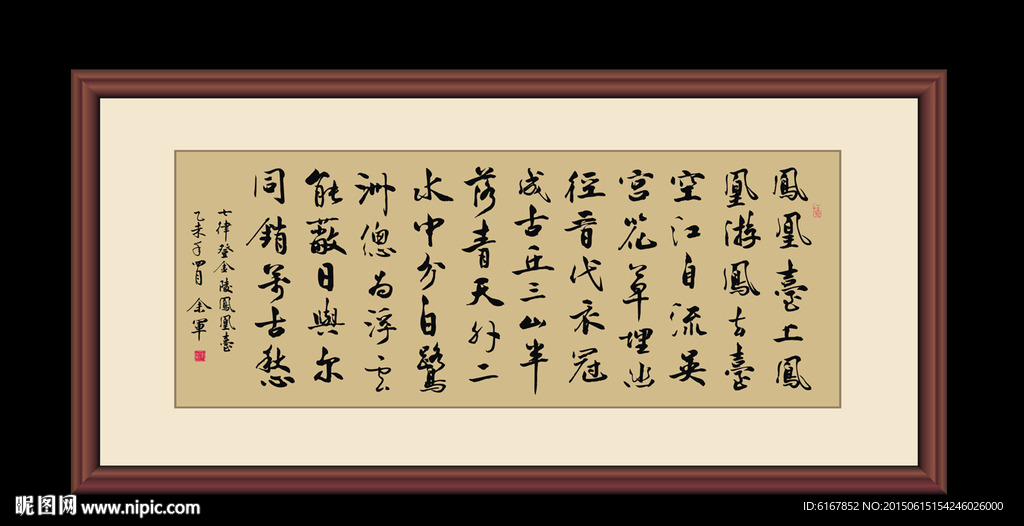 鳳凰臺上鳳
凰游鳳去臺
空江自流吴
宮花草埋幽
徑晋代衣冠
成古丘三山半
落青天外二
水中分白鷺
洲總为浮云
能蔽日與尔
同銷萬古愁
七律登金陵鳳凰臺
乙未年四月 余軍
昵图网 www.nipic.com
ID:6167852 NO:20150615154246026000